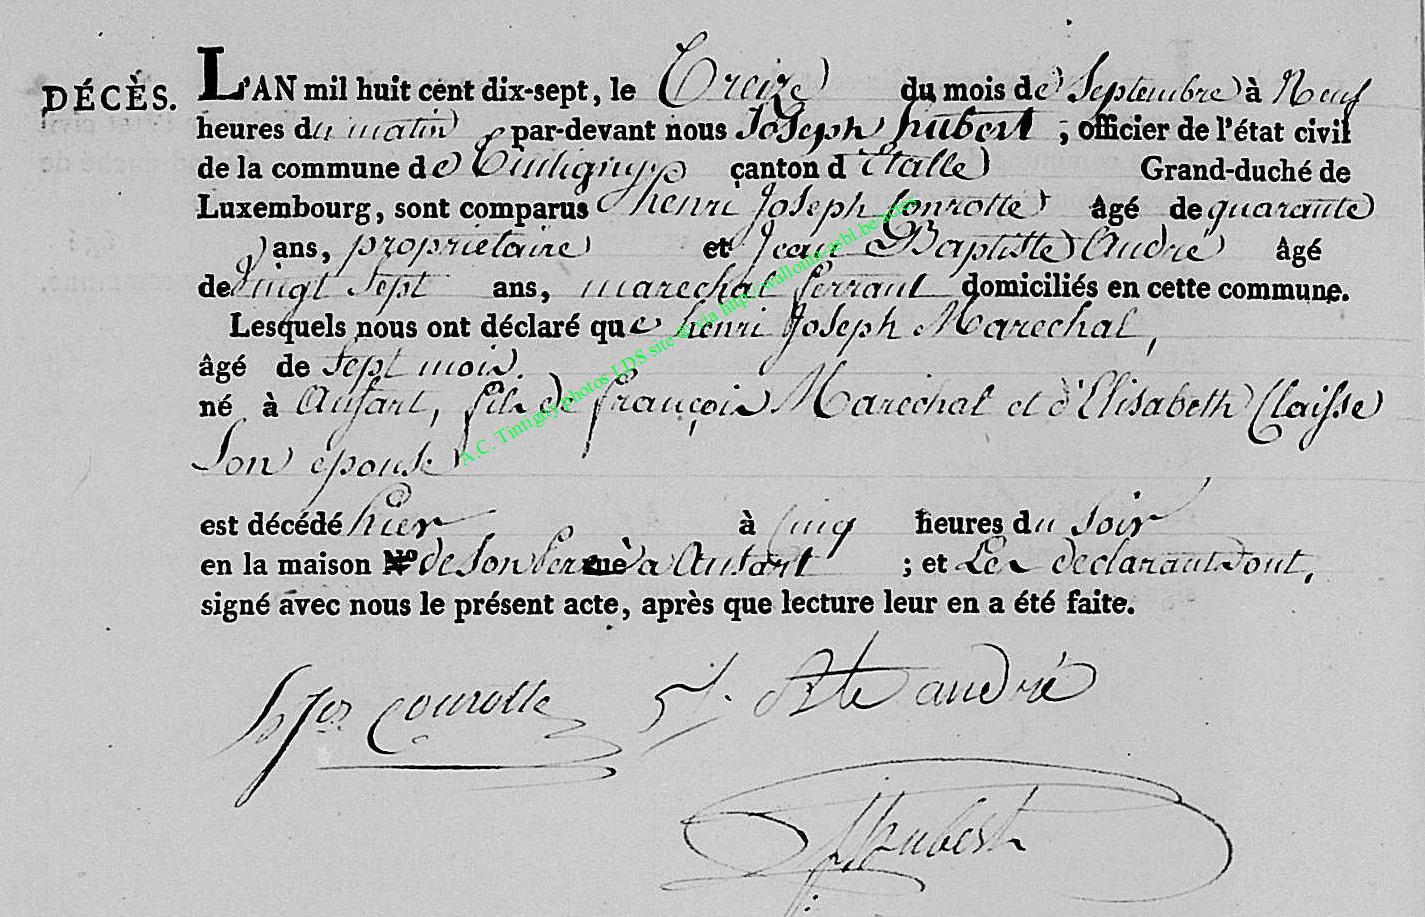 DÉCÈS.
L'AN mil huit cent dix-sept, le Treize du mois de Septembre à Neuf
heures du matin par-devant nous Joseph hubert ; officier de l'état civil
de la commune de Tintigny canton d'Etalle Grand-duché de
Luxembourg, sont comparus henri Joseph Conrotte âgé de quarante
ans, propriétaire et Jean Baptiste André âgé
de vingt Sept ans, marechal ferrant domiciliés en cette commune.
Lesquels nous ont déclaré que henri Joseph Marechal,
âgé de Sept mois.
né à Ansart, fils de françois Maréchal et d'Elisabeth Claisse
Son epouse
est décédé hier à Cinq heures du Soir
en la maison N.o de Son Per à Ansart ; et Les declarant ont,
signé avec nous le présent acte, après que lecture leur en a été faite.
hjos conrotte J. Bte andré
J hubert
A.C. Tintigny photos LDS site @ via http://wallonia-asbl.be/actes